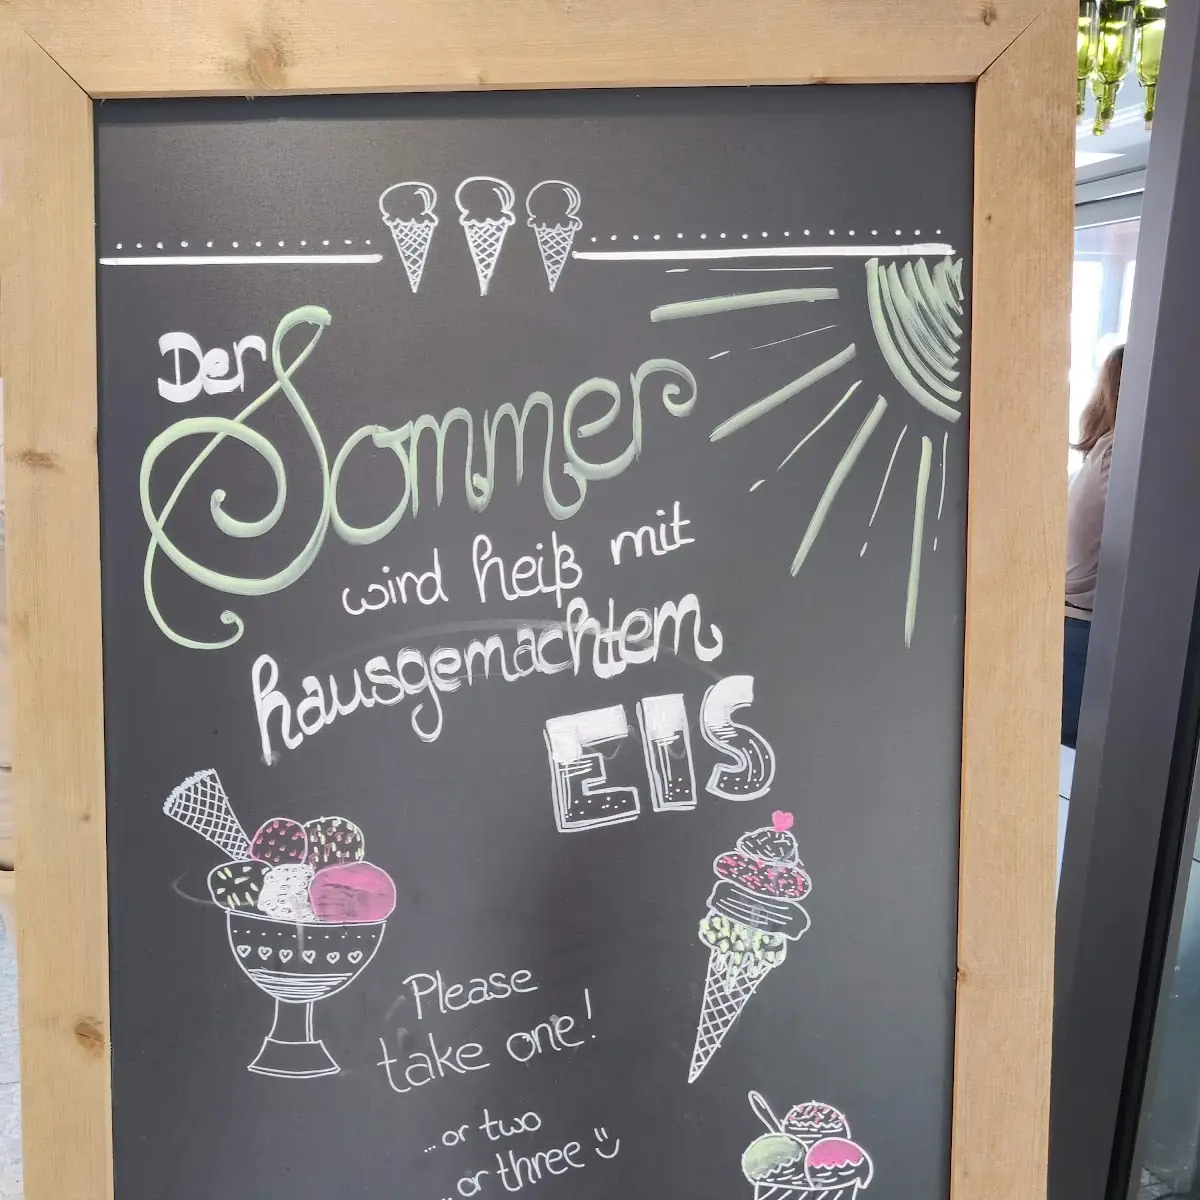 Der Sommer
wird heiß mit
hausgemachtem
EIS
Please
take one!
...or two
...or three